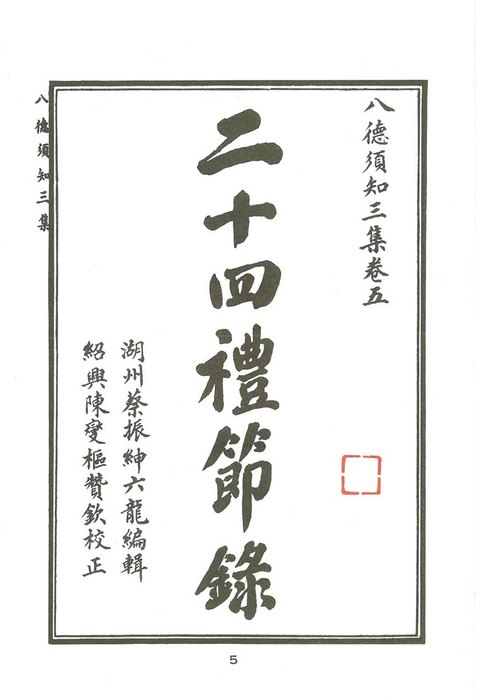 八德須知三集卷五
二十四禮節錄
湖州蔡振紳六龍編輯
紹興陳燮樞贊欽校正
八德須知三集
5